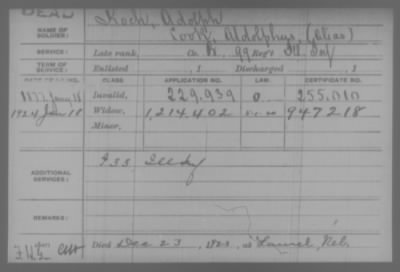 DEAD
NAME OF SOLDIER: Koch, Adolph
Cook, Adolphus, (Alias)
SERVICE: Late rank, Co. K, 99 Reg't Ill. Inf
TERM OF SERVICE: Enlisted , 1 Discharged , 1
CLASS APPLICATION NO. LAW CERTIFICATE NO.
1877 Invalid, 229.939 255.010
1924 Jan 18 Widow, 1,214.402 947218
Minor,
ADDITIONAL SERVICES:
REMARKS:
Died Dec 23, at Laurel, Neb.